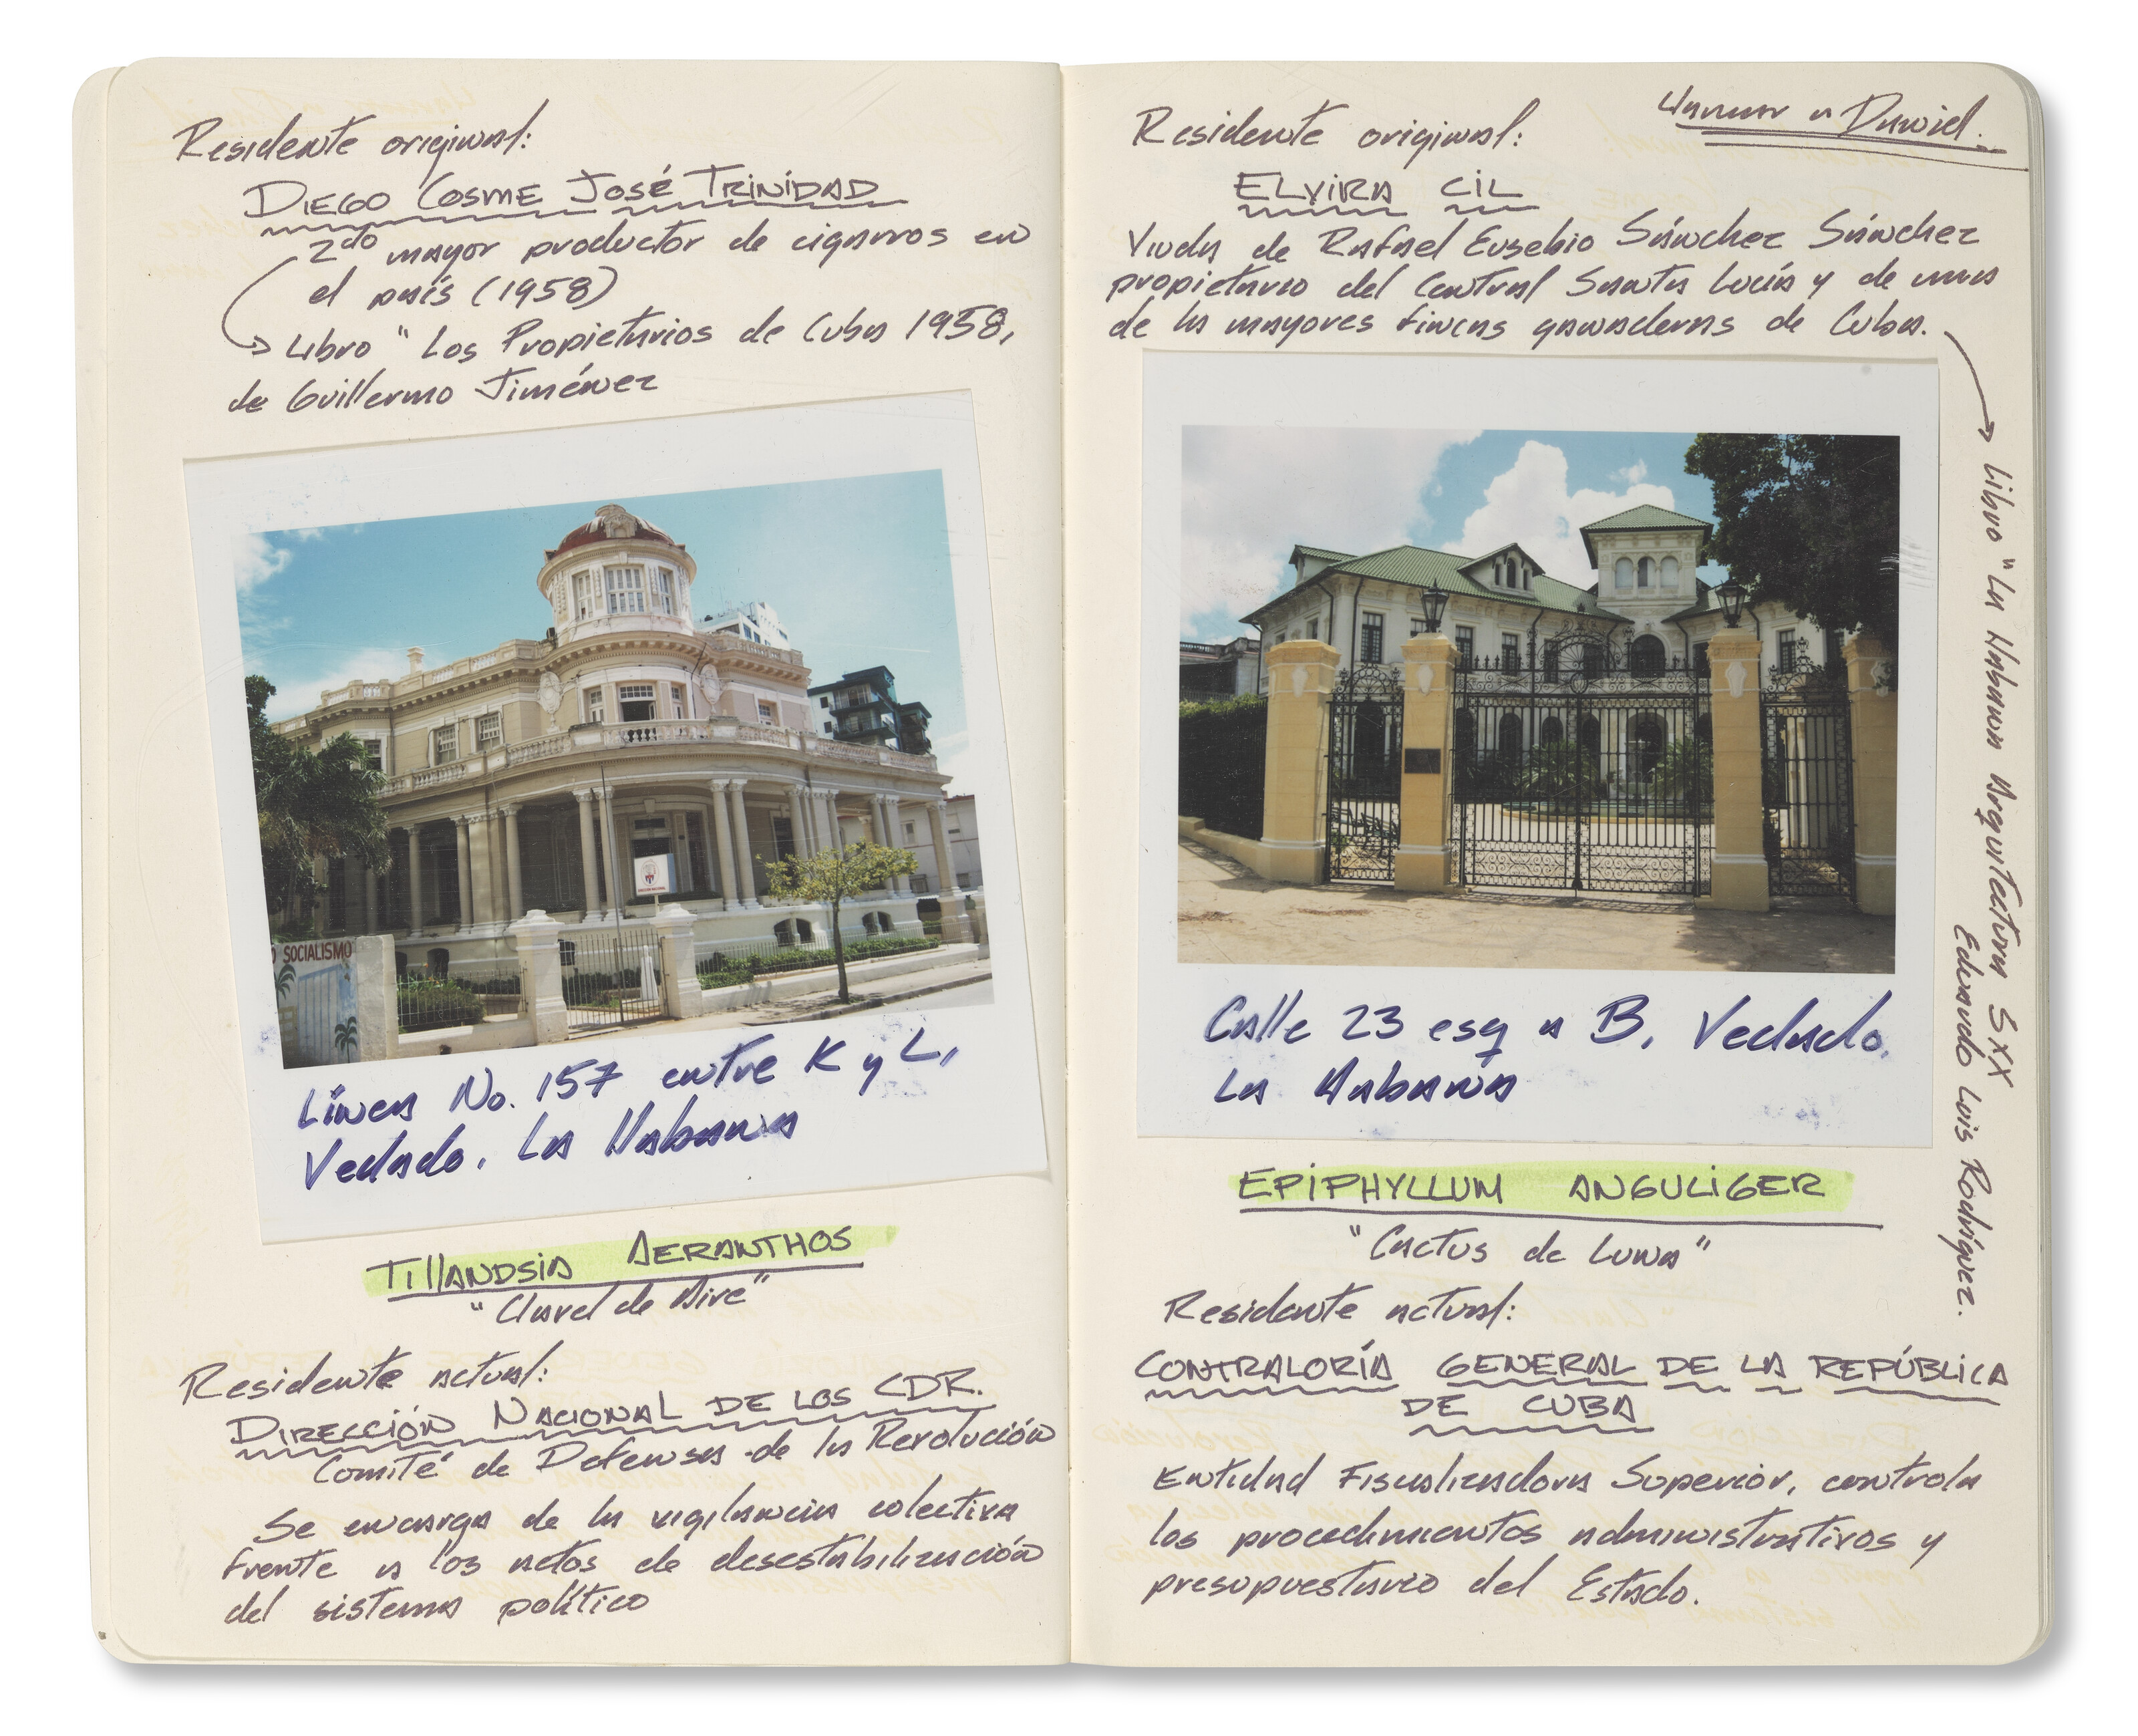 Residente original:
DIEGO COSME JOSÉ TRINIDAD
2do mayor productor de cigarros en
el país (1958)
Libro "Los Propietarios de Cuba 1958,
de Guillermo Jiménez
SOCIALISMO
Línea No. 157 entre K y L,
Vedado. La Habana
TILLANDSIA AERANTHOS
"Clavel de Aire"
Residente actual:
DIRECCIÓN NACIONAL DE LOS CDR.
Comité de Defensa de la Revolución
Se encarga de la vigilancia colectiva
frente a los actos de desestabilización
del sistema político
Llamar a Daniel.
Residente original:
ELVIRA CIL
Viuda de Rafael Eusebio Sánchez Sánchez
propietario del Central Santa Lucía y de unas
de las mayores fincas ganaderas de Cuba.
Libro "La Habana Arquitectura S XX
Eduardo Luis Rodríguez.
Calle 23 esq a B. Vedado.
La Habana
EPIPHYLLUM ANGULIGER
"Cactus de Luna"
Residente actual:
CONTRALORÍA GENERAL DE LA REPÚBLICA
DE CUBA
Entidad Fiscalizadora Superior, controla
los procedimientos administrativos y
presupuestario del Estado.